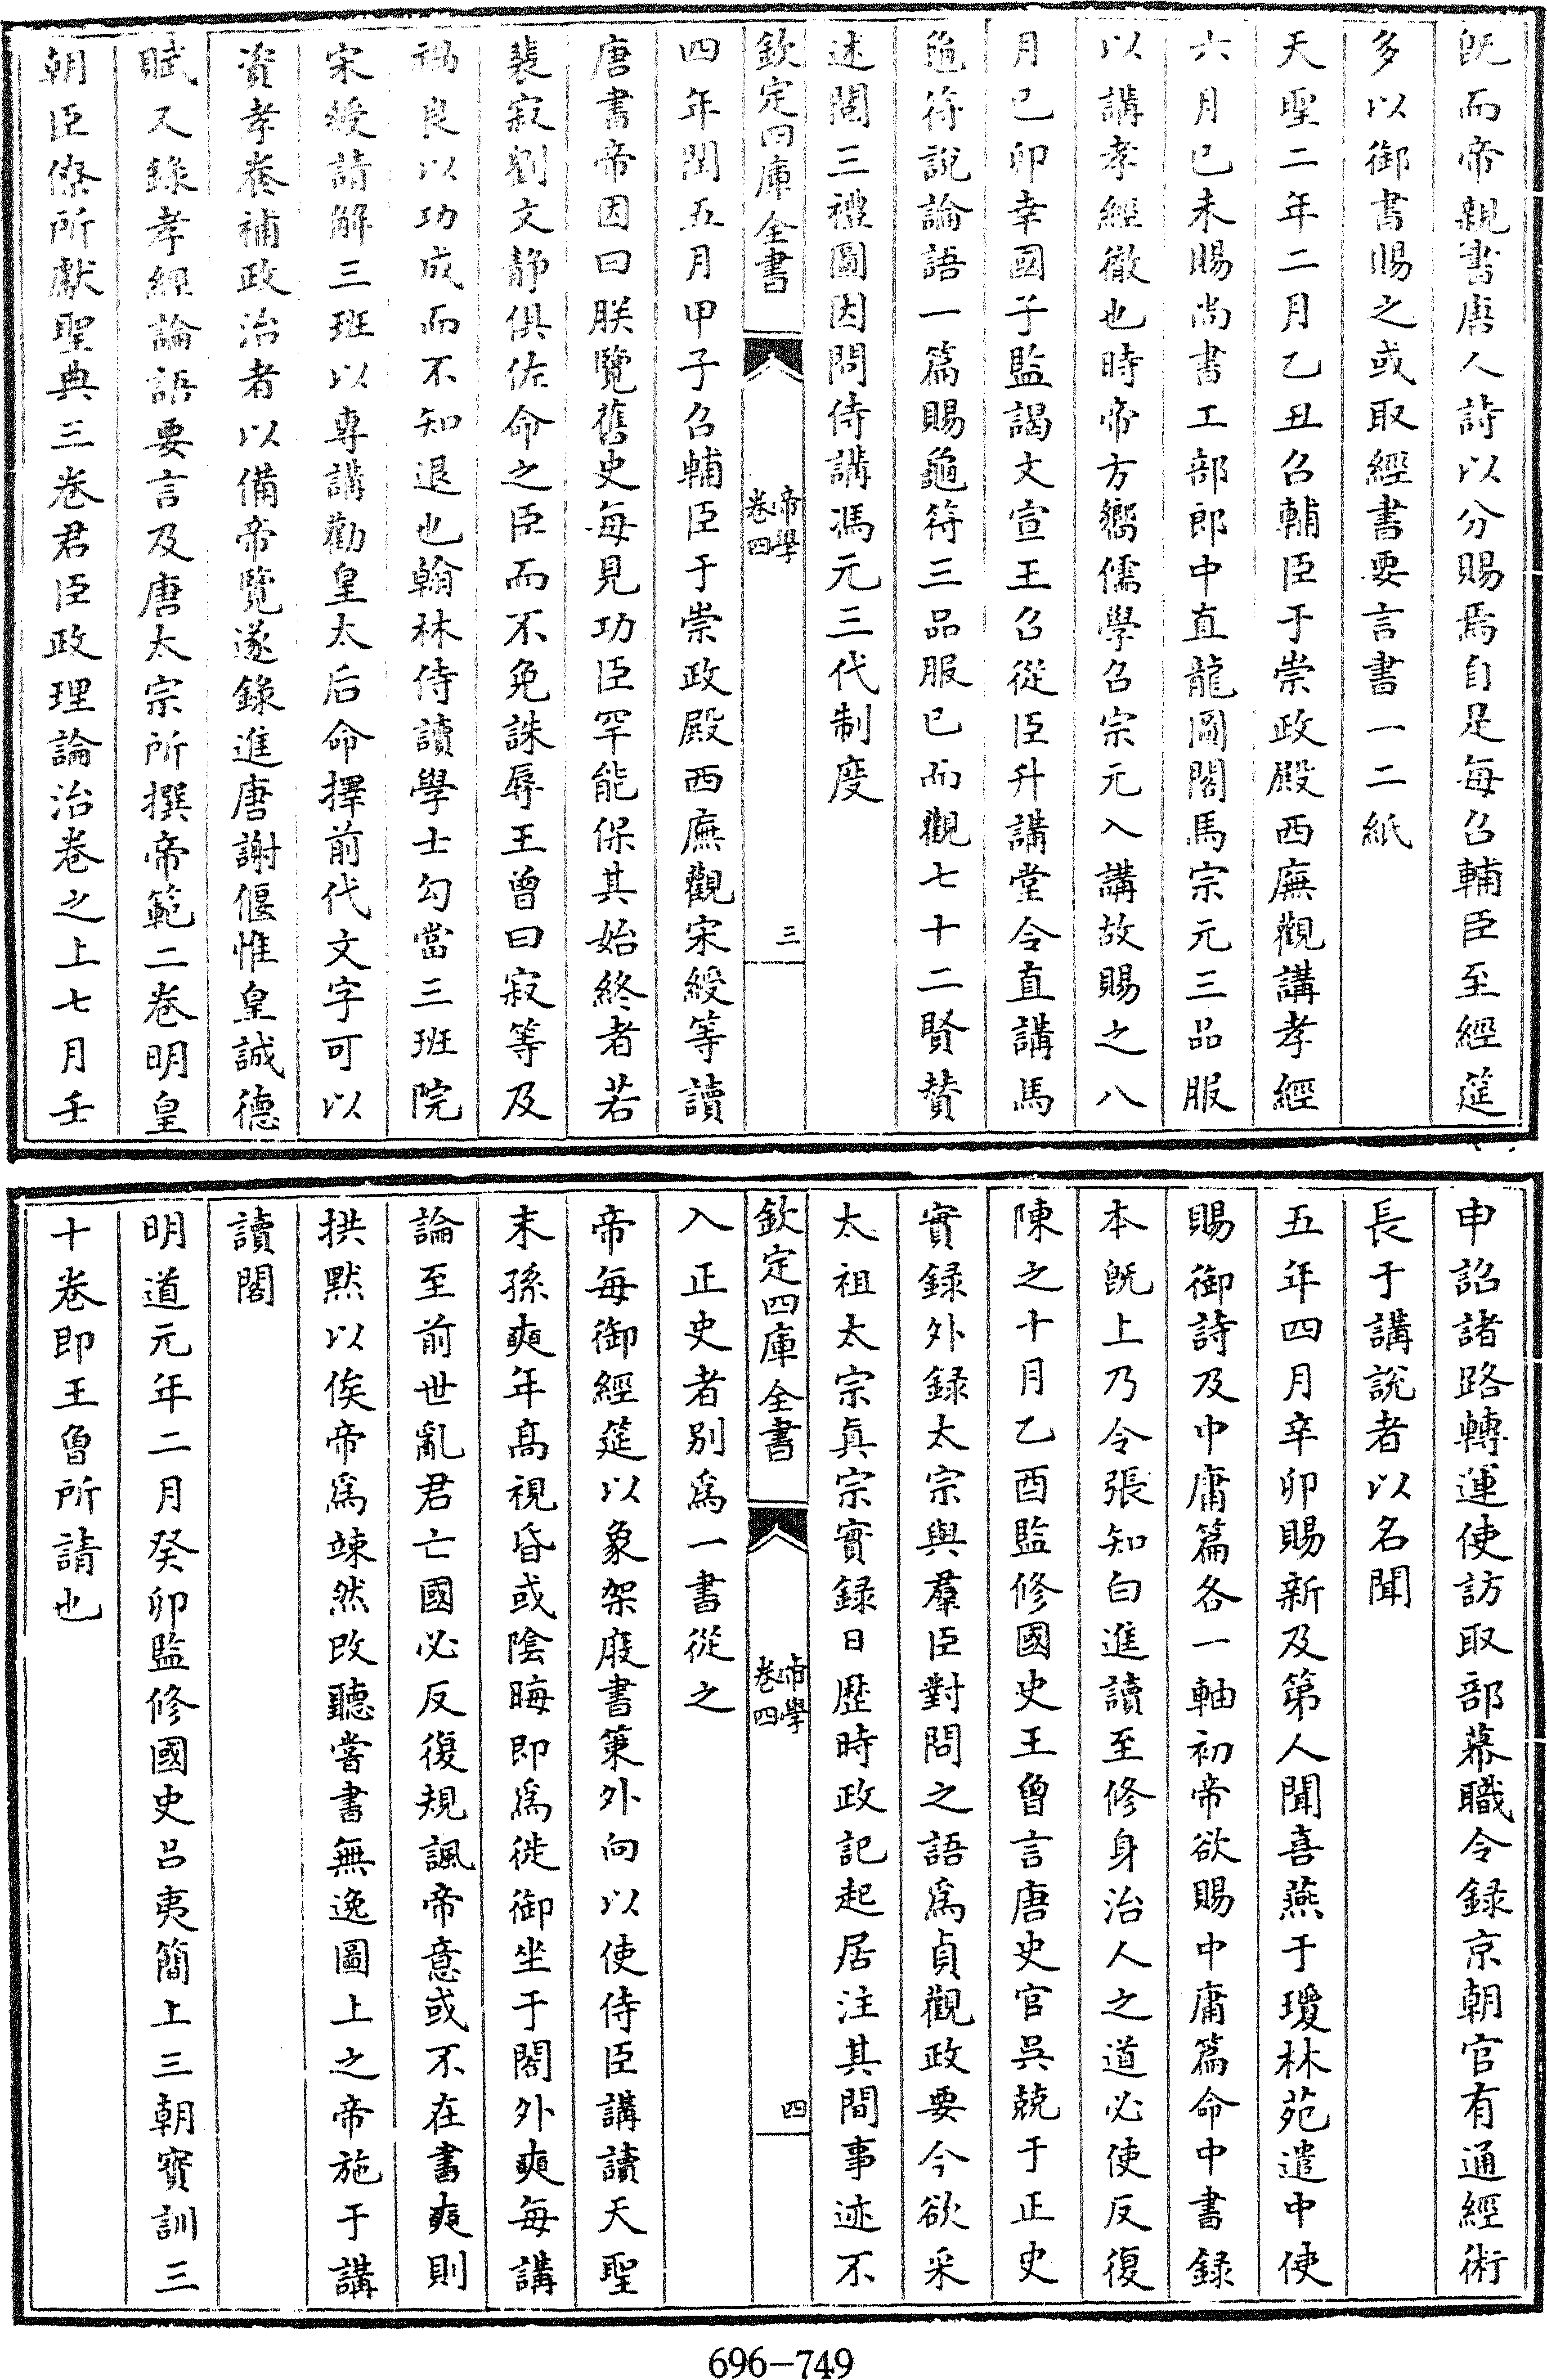 既而帝親書唐人詩以分賜焉自是每召輔臣至經筵
多以御書賜之或取經書要言書一二紙
天聖二年二月乙丑召輔臣于崇政殿西廡觀講孝經
六月己未賜尚書工部郎中直龍圖閣馬宗元三品服
以講孝經徹也時帝方嚮儒學召宗元入講故賜之八
月己卯幸國子監謁文宣王召從臣升講堂令直講馬
龜符說論語一篇賜龜符三品服已而觀七十二賢贊
述閱三禮圖因問侍講馮元三代制度
欽定四庫全書
帝學
卷四
三
四年閏五月甲子召輔臣于崇政殿西廡觀宋綬等讀
唐書帝因曰朕覽舊史每見功臣罕能保其始終者若
裴寂劉文靜俱佐命之臣而不免誅辱王曾曰寂等及
禍良以功成而不知退也翰林侍讀學士勾當三班院
宋綬請解三班以專講勸皇太后命擇前代文字可以
資孝養補政治者以備帝覽遂錄進唐謝偃惟皇誠德
賦又錄孝經論語要言及唐太宗所撰帝範二卷明皇
朝臣僚所獻聖典三卷君臣政理論治卷之上七月壬
申詔諸路轉運使訪取部幕職令録京朝官有通經術
長于講說者以名聞
五年四月辛卯賜新及第人聞喜燕于瓊林苑遣中使
賜御詩及中庸篇各一軸初帝欲賜中庸篇命中書録
本旣上乃令張知白進讀至修身治人之道必使反復
陳之十月乙酉監修國史王曾言唐史官吳兢于正史
實録外録太宗與羣臣對問之語爲貞觀政要今欲采
太祖太宗眞宗實録日歷時政記起居注其間事迹不
欽定四庫全書
帝學
卷四
四
入正史者別爲一書從之
帝每御經筵以象架庪書策外向以使侍臣講讀天聖
末孫奭年髙視昏或陰晦即爲徙御坐于閣外奭每講
論至前世亂君亡國必反復規諷帝意或不在書奭則
拱默以俟帝爲竦然改聽嘗書無逸圖上之帝施于講
讀閣
明道元年二月癸卯監修國史呂夷簡上三朝寳訓三
十卷即王曾所請也
696-749